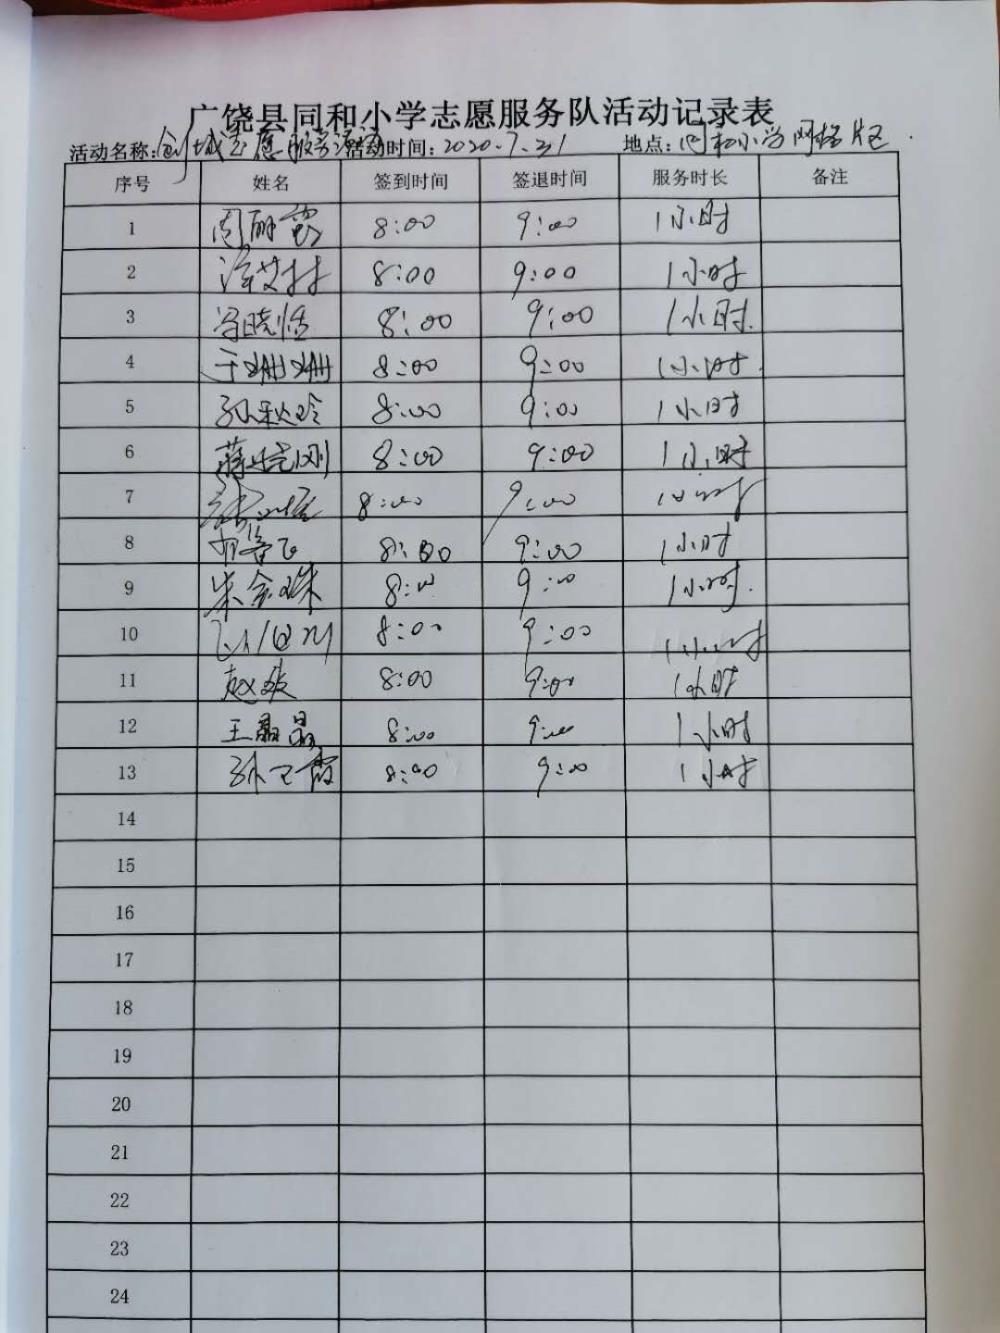 广饶县同和小学志愿服务队活动记录表
活动名称:创城志愿服务活动 活动时间:2020.7.31 地点:同和小学网格片区.
序号 姓名 签到时间 签退时间 服务时长 备注
1 周丽霞 8:00 9:00 1小时
2 8:00 9:00 1小时
3 冯晓恬 8:00 9:00 1小时.
4 于姗姗 8:00 9:00 1小时.
5 孙秋玲 8:00 9:00 1小时
6 蒋晓刚 8:00 9:00 1小时
7 8:00 9:00 1小时
8 8:00 9:00 1小时
9 朱金珠 8:00 9:00 1小时.
10 8:00 9:00 1小时
11 赵姣 8:00 9:00 1小时
12 王晶晶 8:00 9:00 1小时
13 孙卫霞 8:00 9:00 1小时
14
15
16
17
18
19
20
21
22
23
24